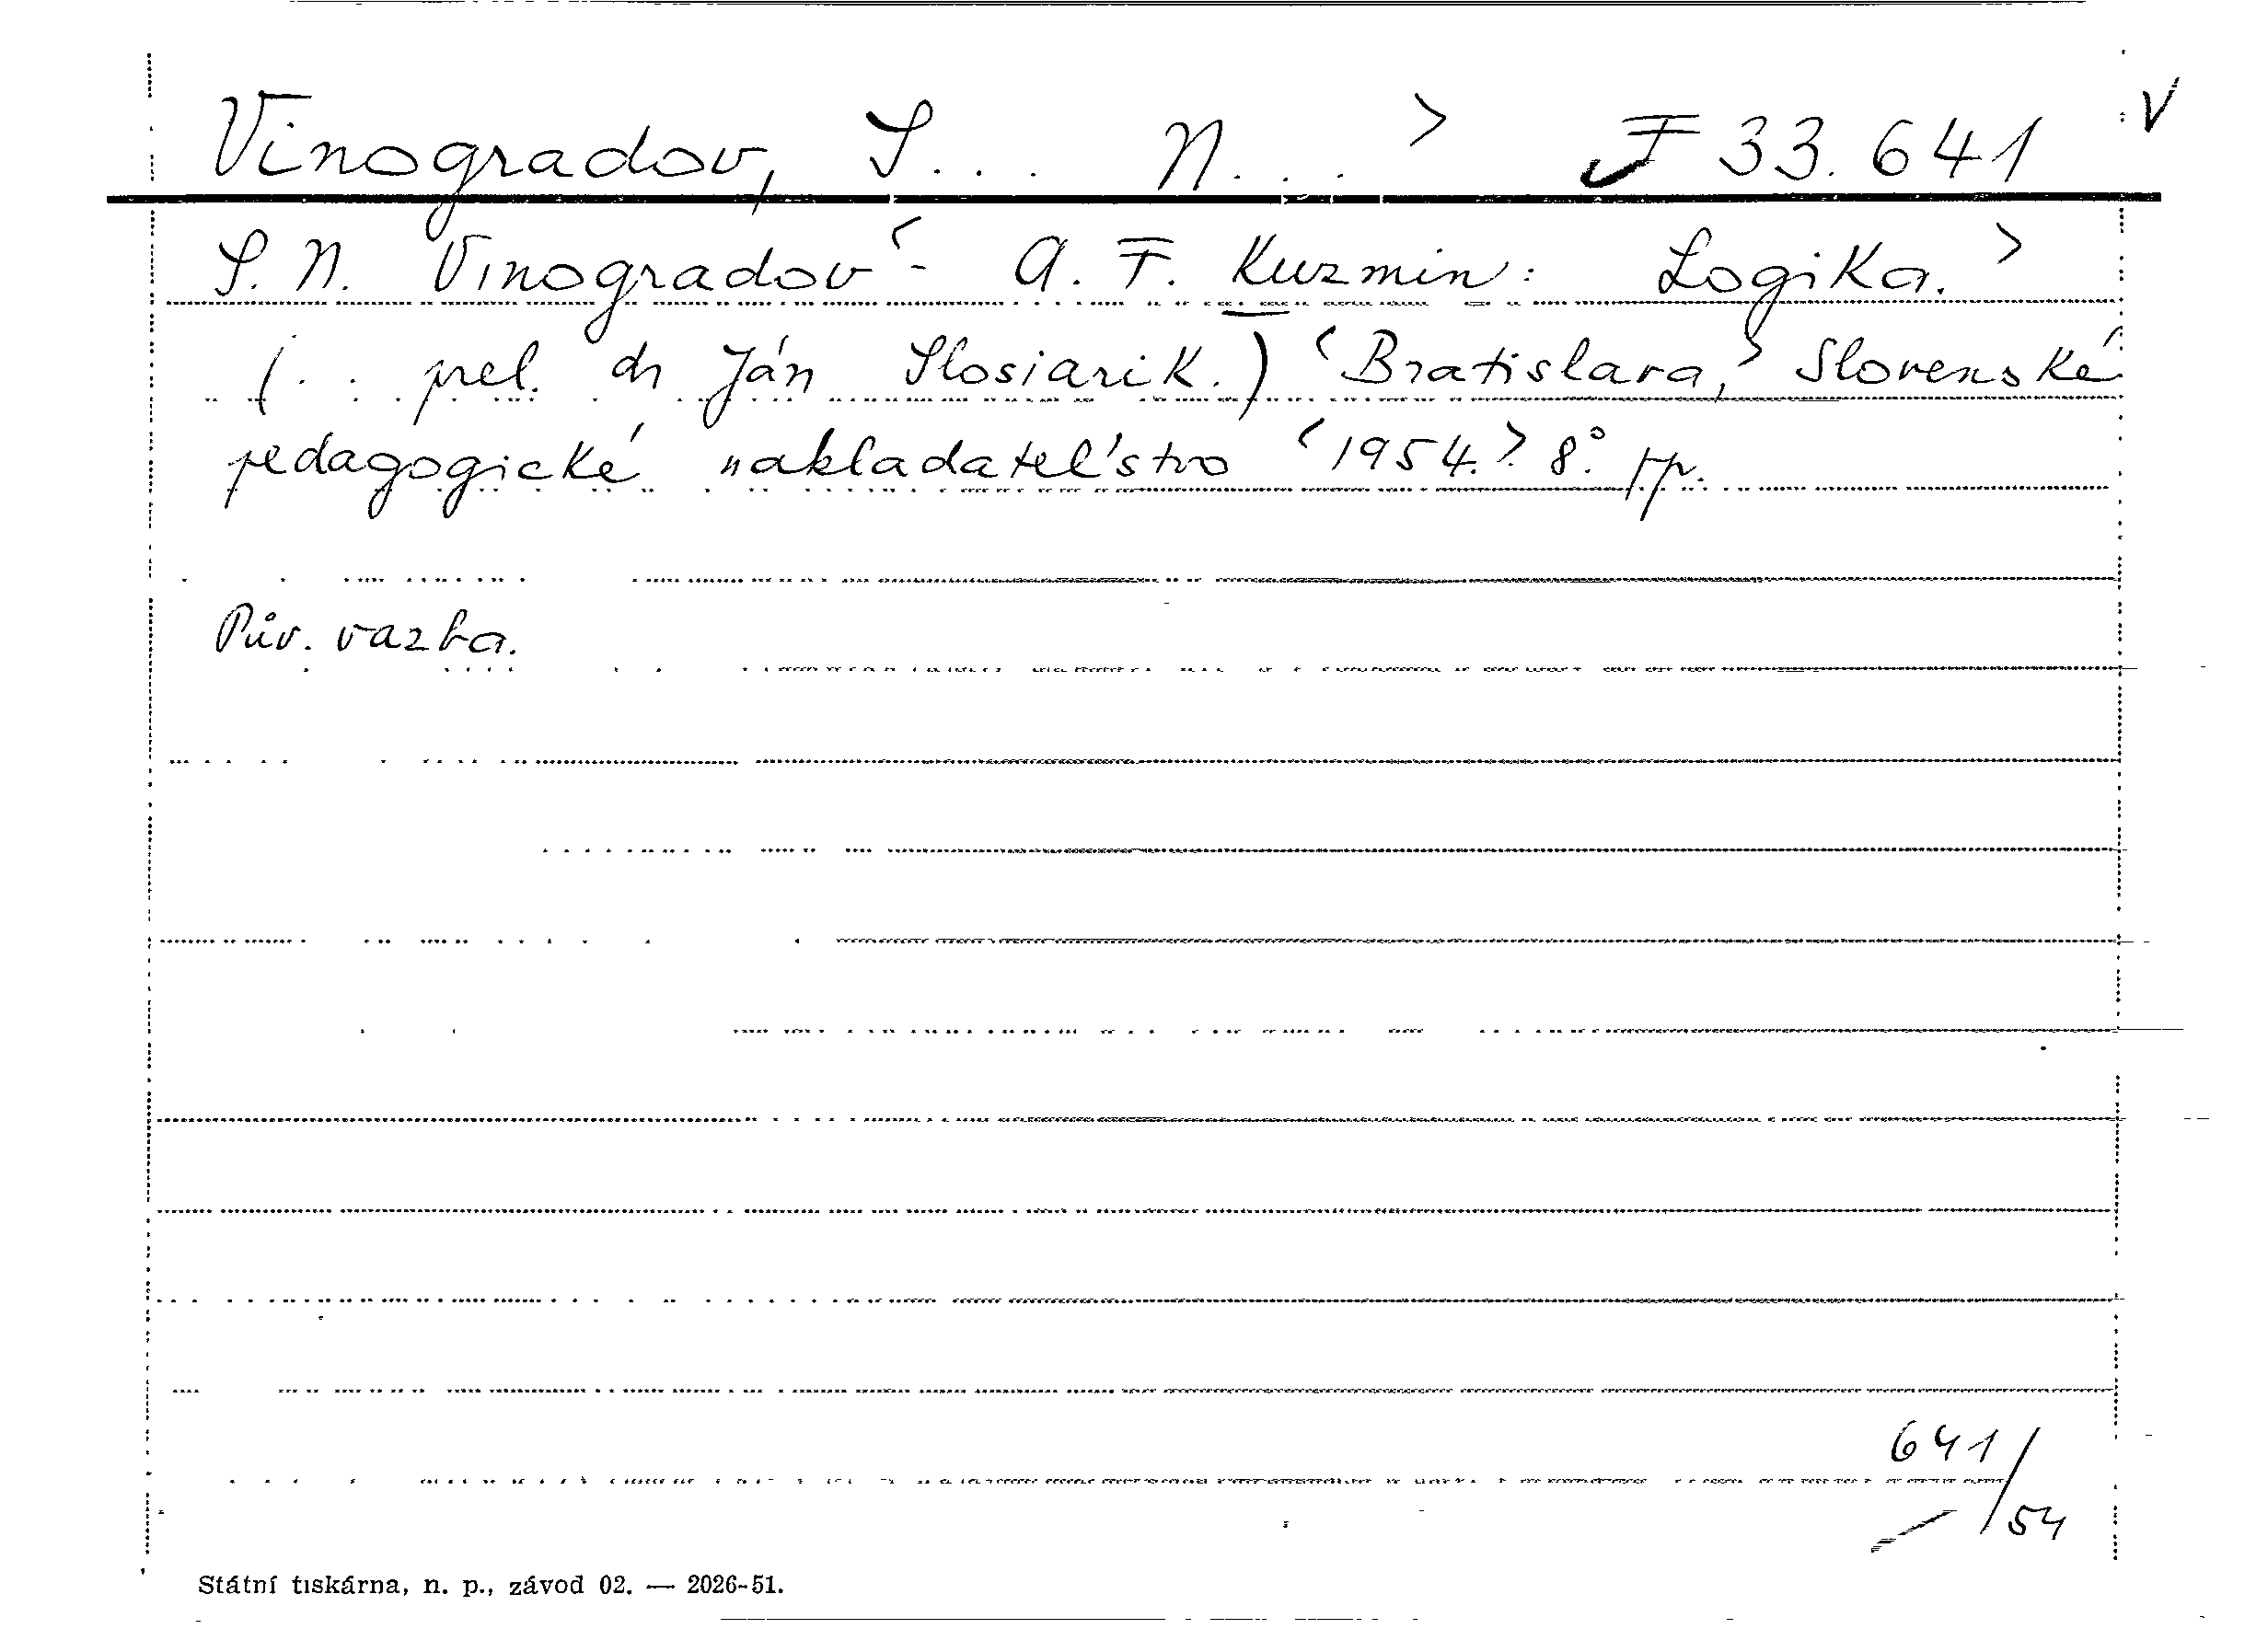 Vinogradov, S... N... > F 33.641 V
S. N. Vinogradov <- A. F. Kuzmin: Logika.>
(.. prel. dr Ján Slosiarik.) <Bratislava,> Slovenské
pedagogické nakladateľstvo <1954.> 8°. pp.
Pův. vazba.
641/54
Státní tiskárna, n. p., závod 02. — 2026-51.